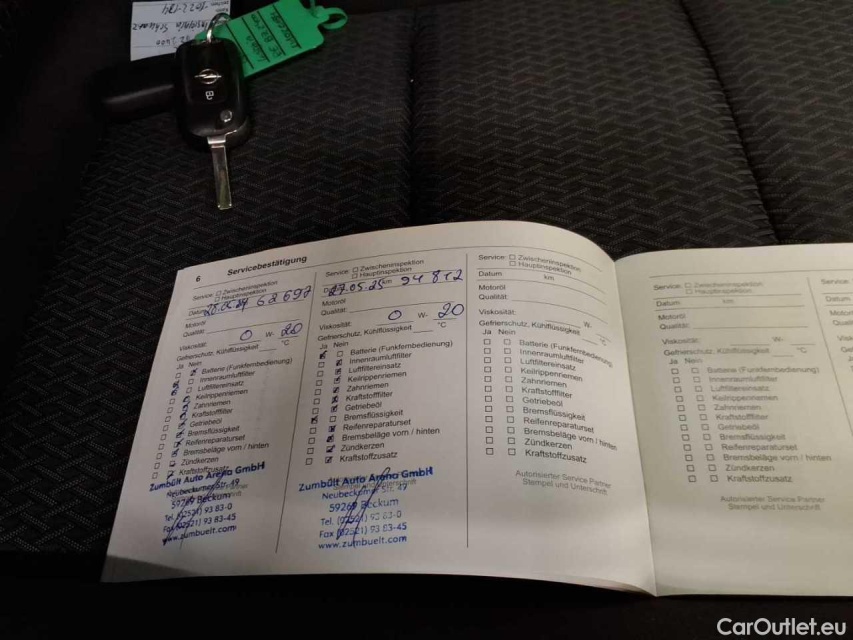 6 Servicebestätigung
Service: Zwischeninspektion
Hauptinspektion
Datum 28.05.24 62697
Motoröl
Qualität:
Viskosität: 0 W- 20
Gefrierschutz, Kühlflüssigkeit °C
Ja Nein
Batterie (Funkfernbedienung)
Innenraumluftfilter
Luftfiltereinsatz
Keilrippenriemen
Zahnriemen
Kraftstofffilter
Getriebeöl
Bremsflüssigkeit
Reifenreparaturset
Bremsbeläge vorn / hinten
Zündkerzen
Kraftstoffzusatz
Zumbült Auto Arena GmbH
Neubeckumer Str. 49
59269 Beckum
Tel. (02521) 93 83-0
Fax (02521) 93 83-45
www.zumbuelt.com
Service: Zwischeninspektion
Hauptinspektion
27.05.25 km 94812
Motoröl
Qualität:
Viskosität: 0 W- 20
Gefrierschutz, Kühlflüssigkeit °C
Ja Nein
Batterie (Funkfernbedienung)
Innenraumluftfilter
Luftfiltereinsatz
Keilrippenriemen
Zahnriemen
Kraftstofffilter
Getriebeöl
Bremsflüssigkeit
Reifenreparaturset
Bremsbeläge vorn / hinten
Zündkerzen
Kraftstoffzusatz
Zumbült Auto Arena GmbH
Neubeckumer Str. 49
59269 Beckum
Tel. (02521) 93 83-0
Fax (02521) 93 83-45
www.zumbuelt.com
Service: Zwischeninspektion
Hauptinspektion
Datum km
Motoröl
Qualität:
Viskosität: W-
Gefrierschutz, Kühlflüssigkeit °C
Ja Nein
Batterie (Funkfernbedienung)
Innenraumluftfilter
Luftfiltereinsatz
Keilrippenriemen
Zahnriemen
Kraftstofffilter
Getriebeöl
Bremsflüssigkeit
Reifenreparaturset
Bremsbeläge vorn / hinten
Zündkerzen
Kraftstoffzusatz
Autorisierter Service Partner
Stempel und Unterschrift
Service: Zwischeninspektion
Hauptinspektion
Datum km
Motoröl
Qualität:
Viskosität: W-
Gefrierschutz, Kühlflüssigkeit °C
Ja Nein
Batterie (Funkfernbedienung)
Innenraumluftfilter
Luftfiltereinsatz
Keilrippenriemen
Zahnriemen
Kraftstofffilter
Getriebeöl
Bremsflüssigkeit
Reifenreparaturset
Bremsbeläge vorn / hinten
Zündkerzen
Kraftstoffzusatz
Autorisierter Service Partner
Stempel und Unterschrift
Service
Datum
Motoröl
Qualität
CarOutlet.eu